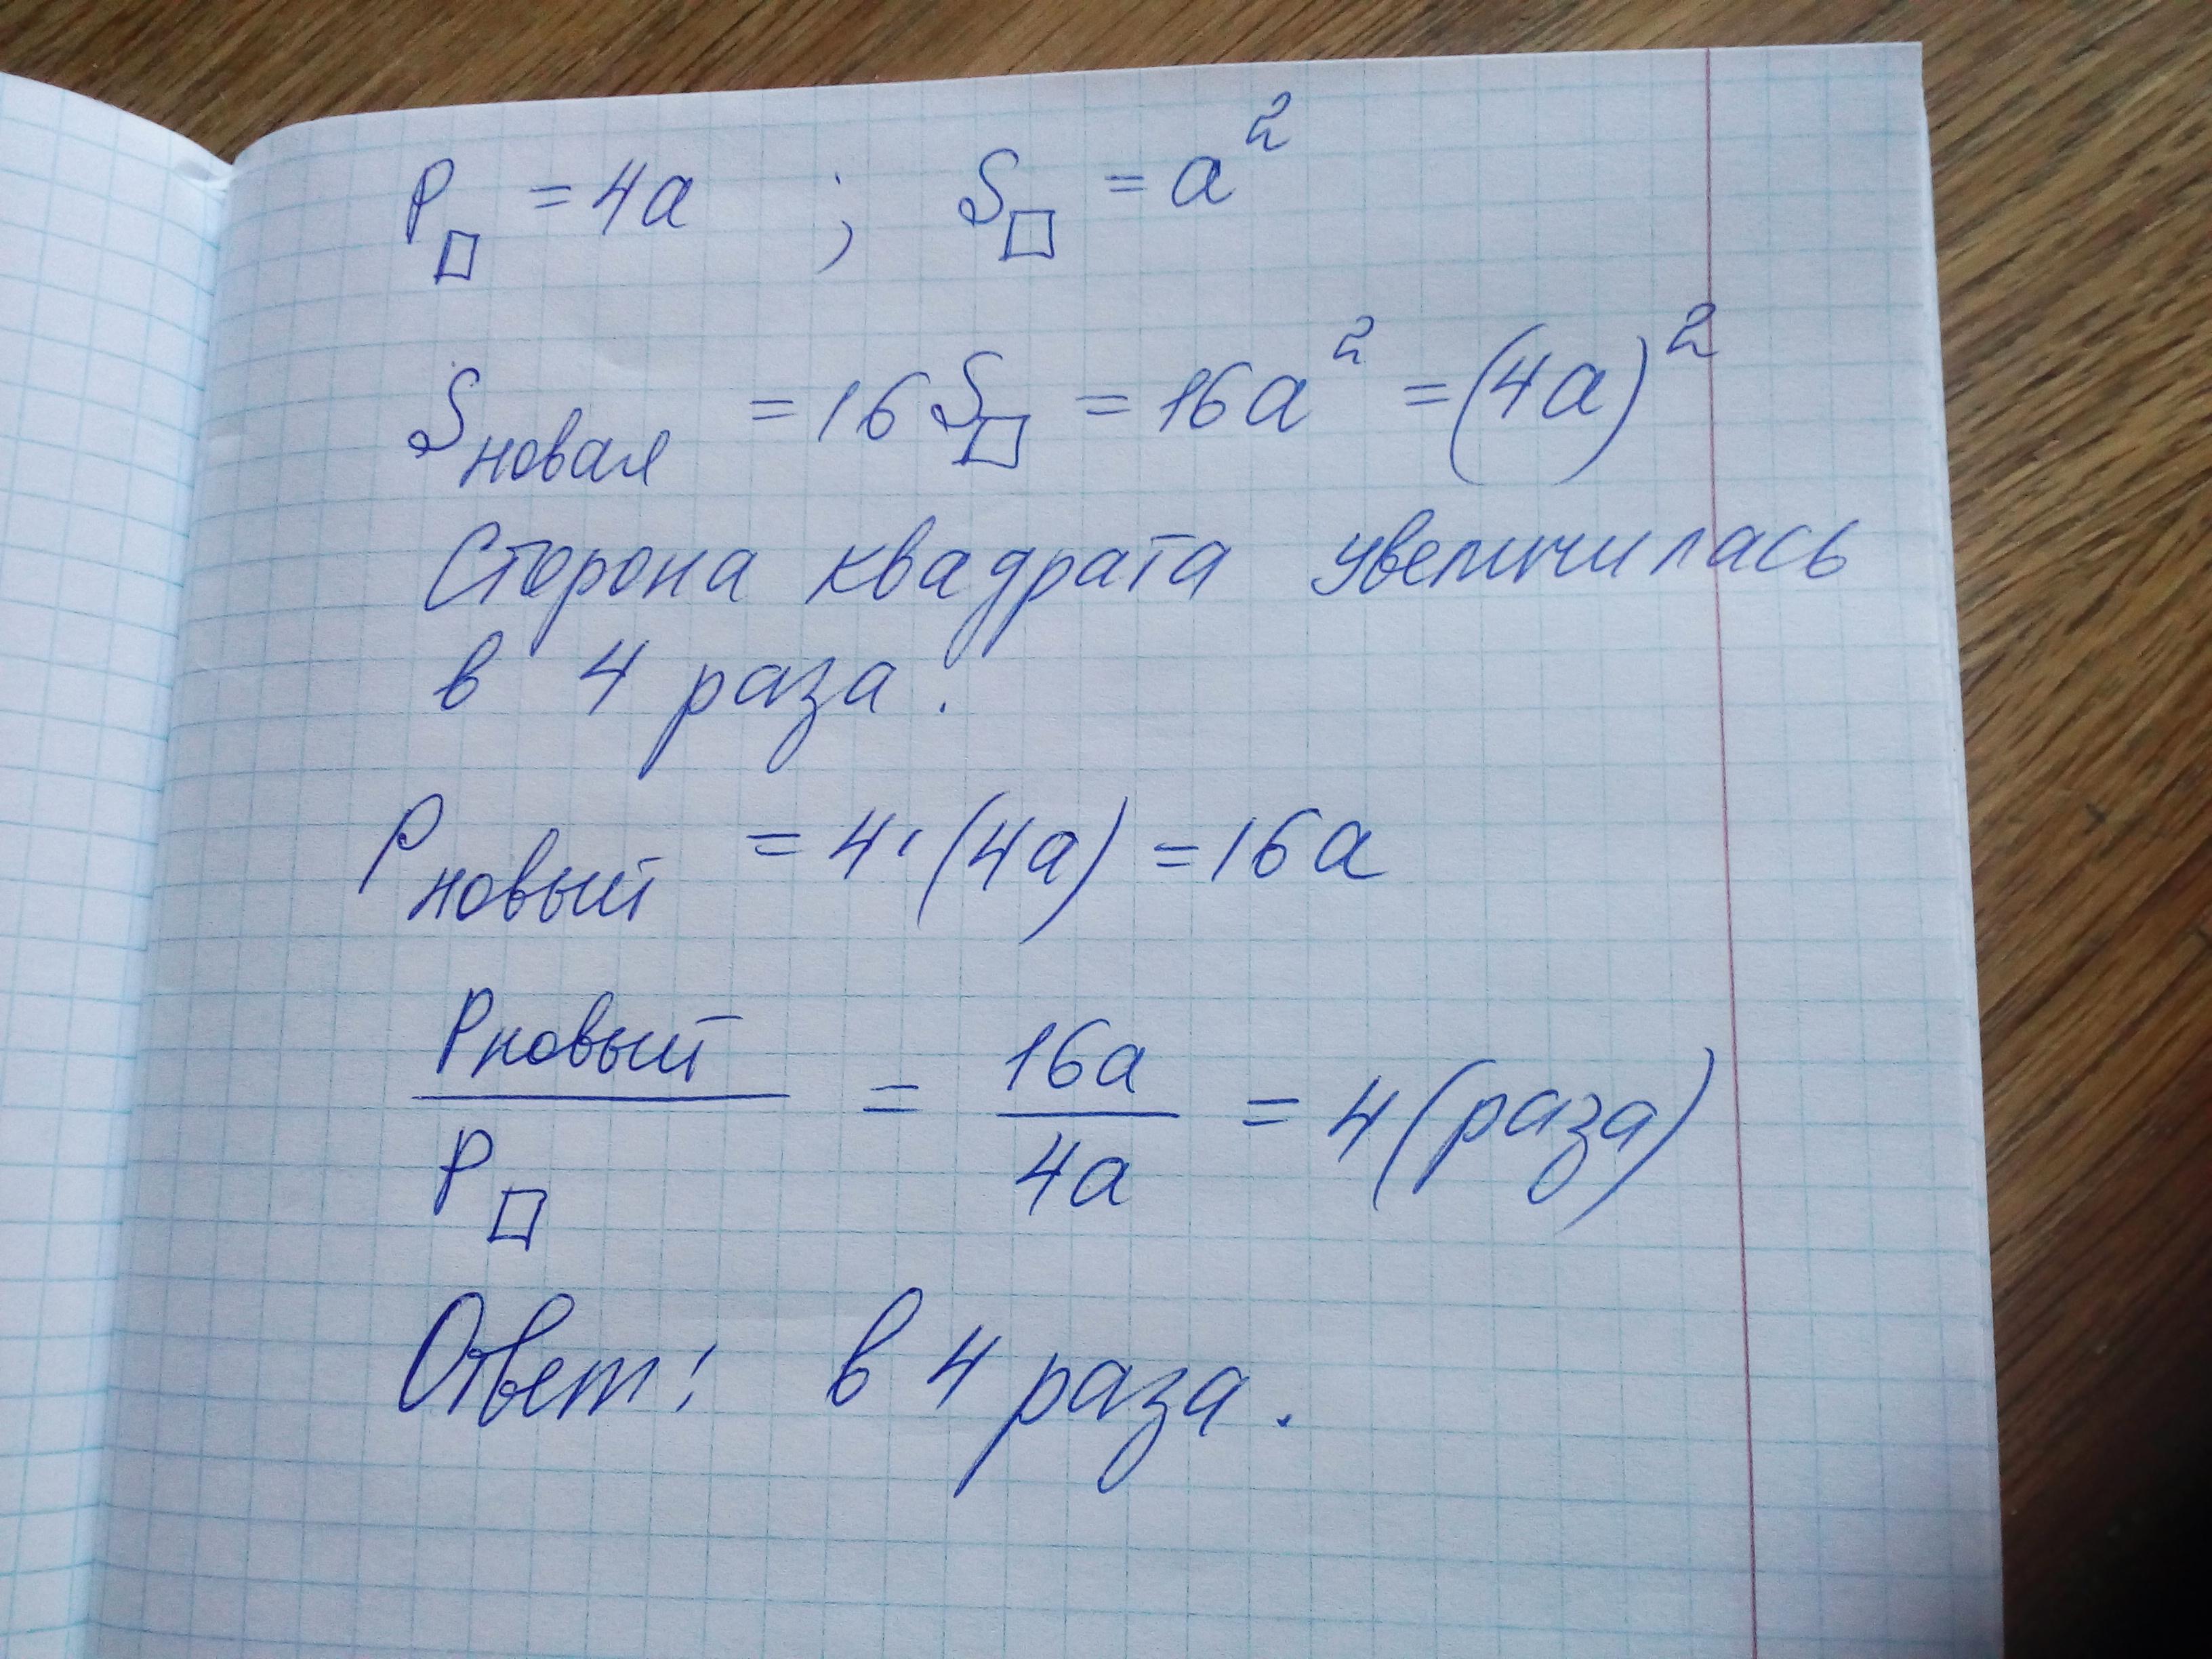 P□ = 4a ; S□ = a²
Sновая = 16S□ = 16a² = (4a)²
Сторона квадрата увеличилась
в 4 раза.
Pновый = 4·(4a) = 16a
Pновый / P□ = 16a / 4a = 4 (раза)
Ответ: в 4 раза.